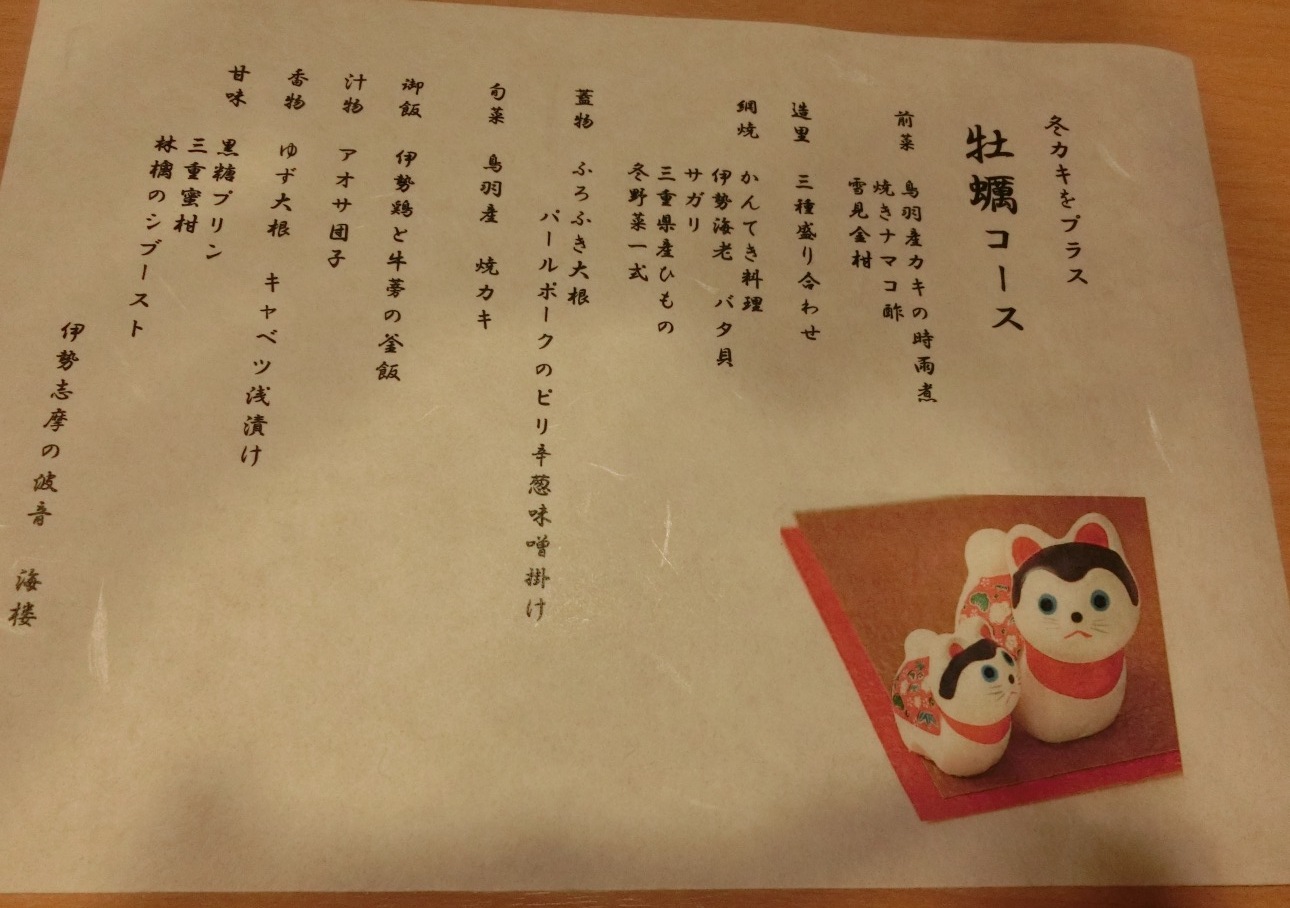 冬カキをプラス
牡蠣コース
前菜 鳥羽産カキの時雨煮
焼きナマコ酢
雪見金柑
造里 三種盛り合わせ
網焼 かんてき料理
伊勢海老 バタ貝
サガリ
三重県産ひもの
冬野菜一式
蓋物 ふろふき大根
パールポークのピリ辛葱味噌掛け
旬菜 鳥羽産 焼カキ
御飯 伊勢鶏と牛蒡の釜飯
汁物 アオサ団子
香物 ゆず大根 キャベツ浅漬け
甘味 黒糖プリン
三重蜜柑
林檎のシブースト
伊勢志摩の波音 海楼